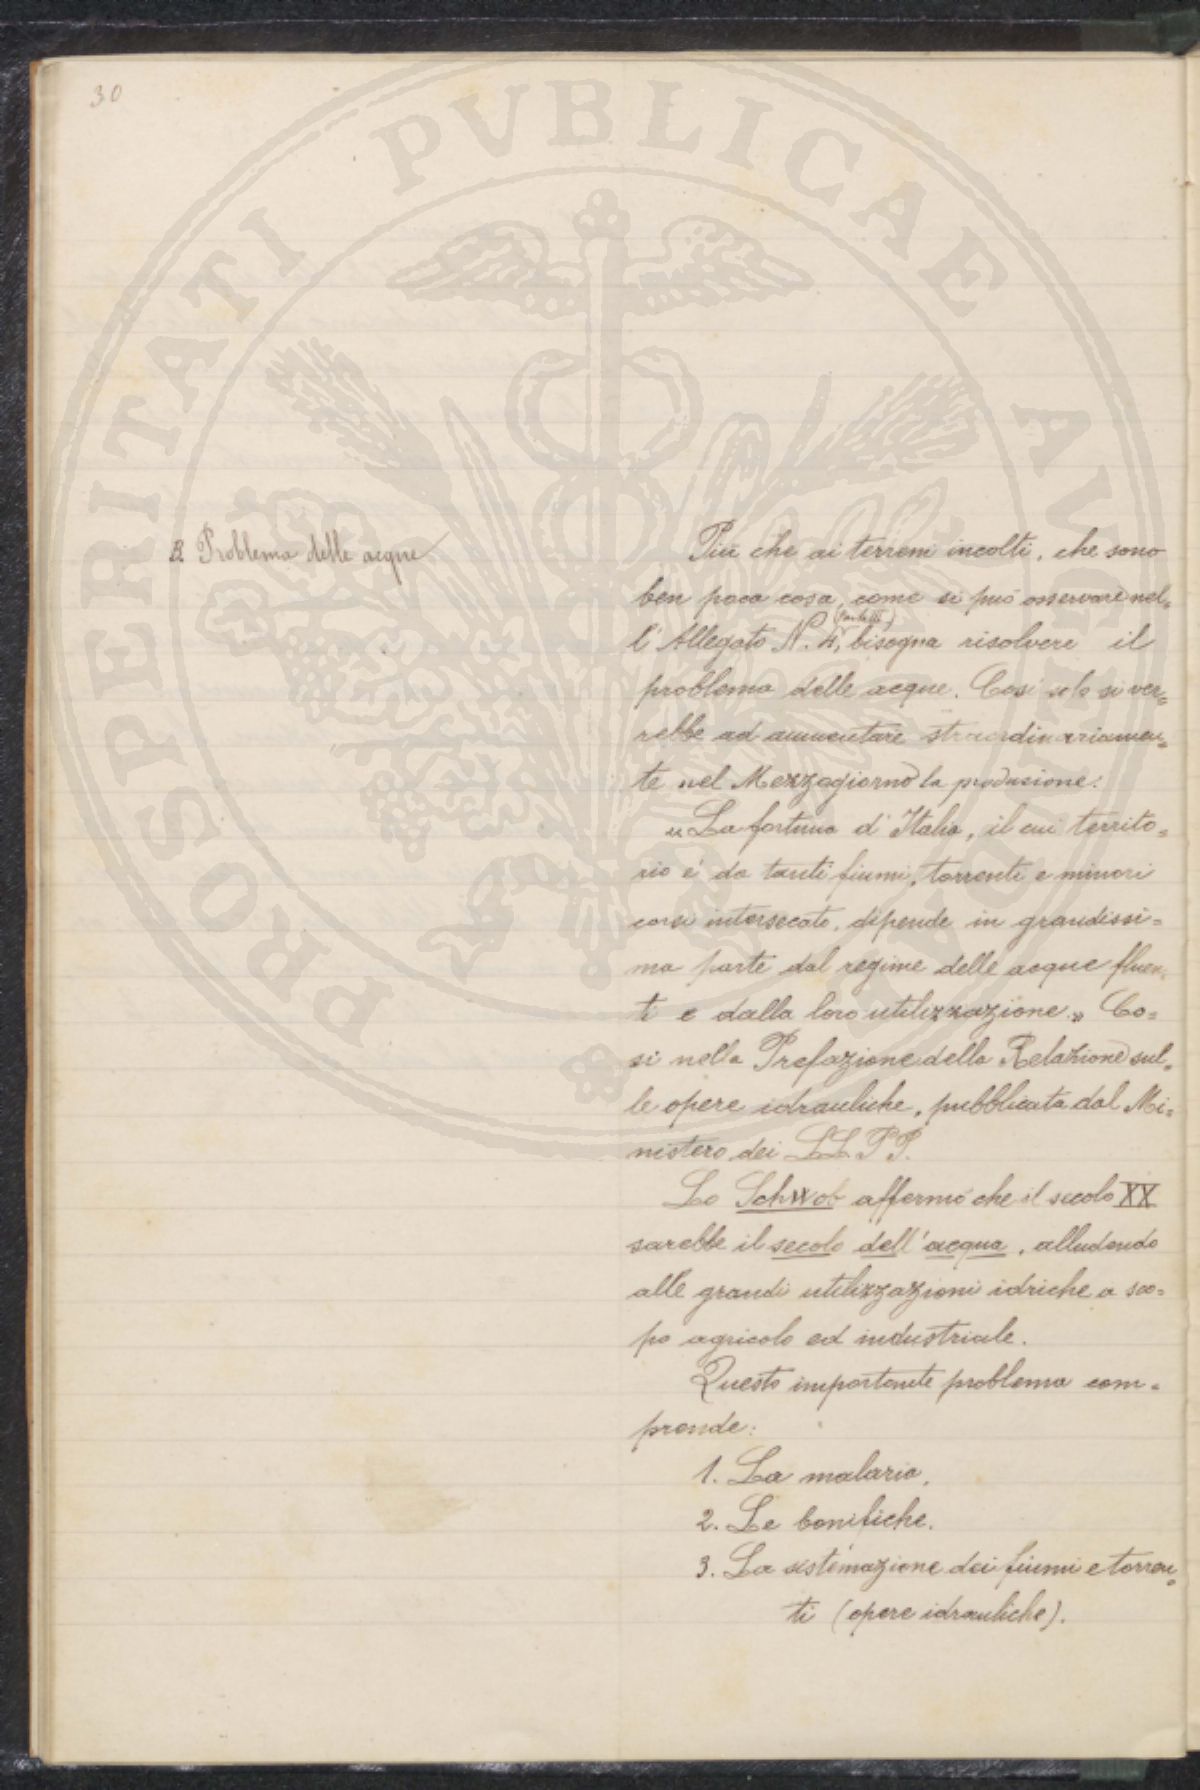 30
PROSPERITATI PVBLICAE AVGENDAE
B Problema delle acque
Più che ai terreni incolti, che sono
ben poca cosa, come si può osservare nel=
l'Allegato N. 4, bisogna risolvere il
problema delle acque. Così solo si ver=
rebbe ad aumentare straordinariamen=
te nel Mezzogiorno la produzione:
"La fortuna d'Italia, il cui territo=
rio è da tanti fiumi, torrenti e minori
corsi intersecato, dipende in grandissi=
ma parte dal regime delle acque fluen=
ti e dalla loro utilizzazione." Co=
sì nella Prefazione della Relazione sul=
le opere idrauliche, pubblicata dal Mi=
nistero dei LL. PP.
Lo Schwob affermò che il secolo XX
sarebbe il secolo dell'acqua, alludendo
alle grandi utilizzazioni idriche a sco=
po agricolo ed industriale.
Questo importante problema com=
prende:
1. La malaria.
2. Le bonifiche.
3. La sistemazione dei fiumi e torren=
ti (opere idrauliche).